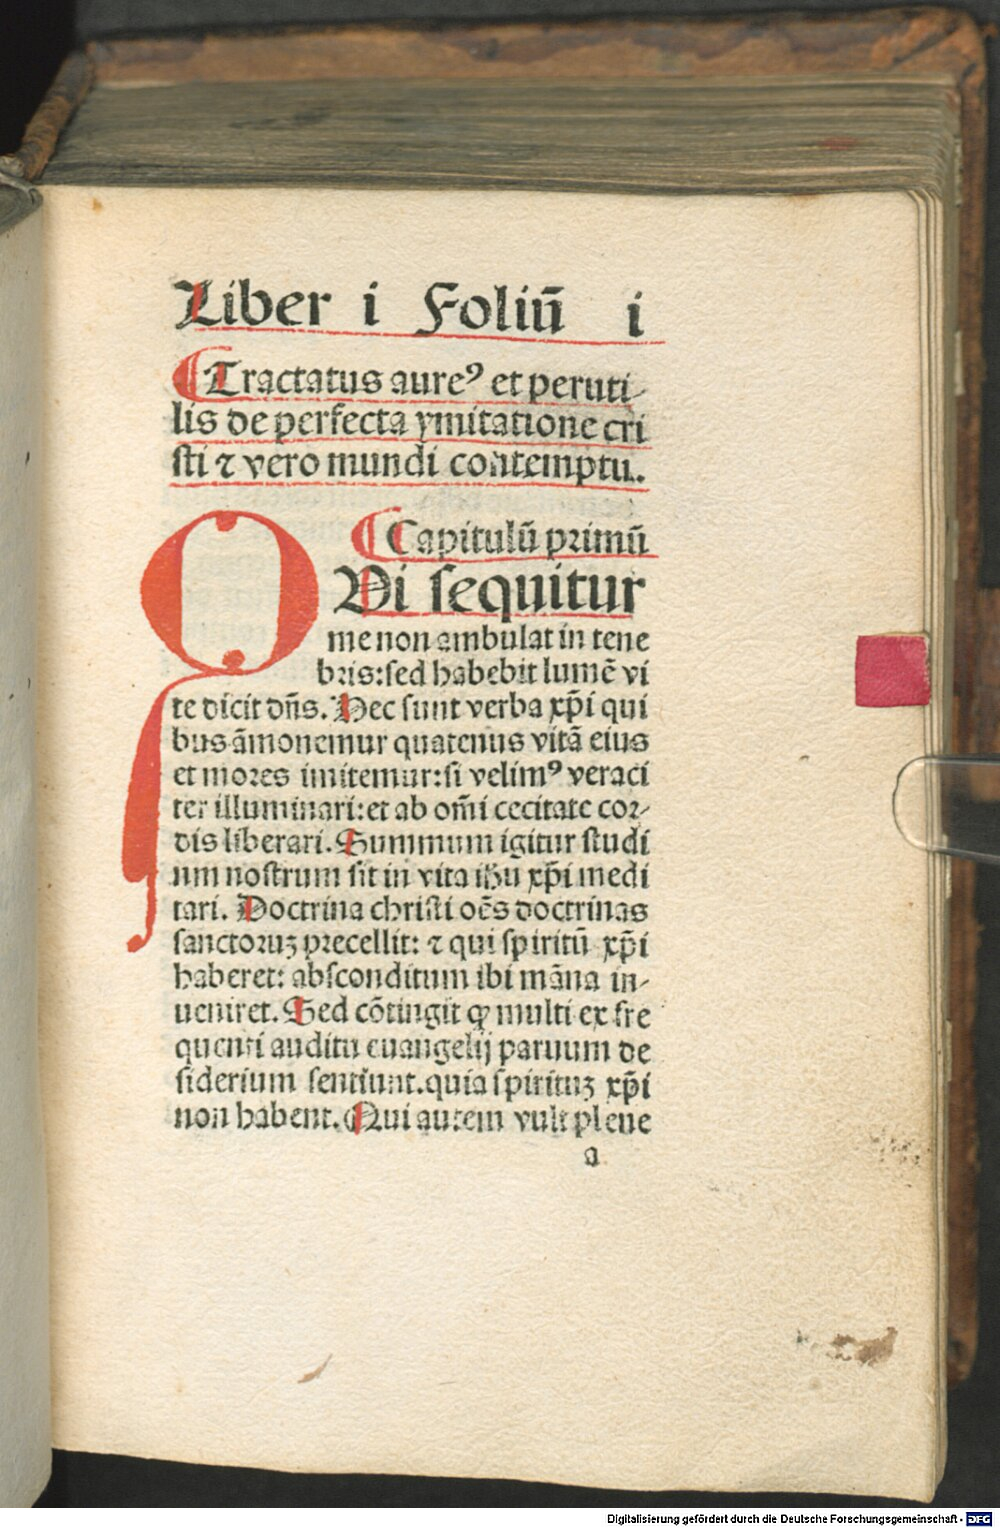 Liber i Foliū i
Tractatus aureꝰ et peruti-
lis de perfecta ymitatione cri
sti ⁊ vero mundi contemptu.
Capitulū primū
QVi sequitur
me non ambulat in tene
bris: sed habebit lumē vi
te dicit dn̄s. Hec sunt verba xp̄i qui
bus āmonemur quatenus vitā eius
et mores imitemur: si velimꝰ veraci
ter illuminari: et ab om̄i cecitate cor-
dis liberari. Summum igitur studi
um nostrum sit in vita ih̄u xp̄i medi
tari. Doctrina christi oēs doctrinas
sanctoruꝫ precellit: ⁊ qui spiritū xp̄i
haberet: absconditum ibi māna in-
ueniret. Sed cōtingit ꝙ multi ex fre
quenti auditu euangelij paruum de
siderium sentiunt. quia spirituꝫ xp̄i
non habent. Qui autem vult plene
a
Digitalisierung gefördert durch die Deutsche Forschungsgemeinschaft - DFG